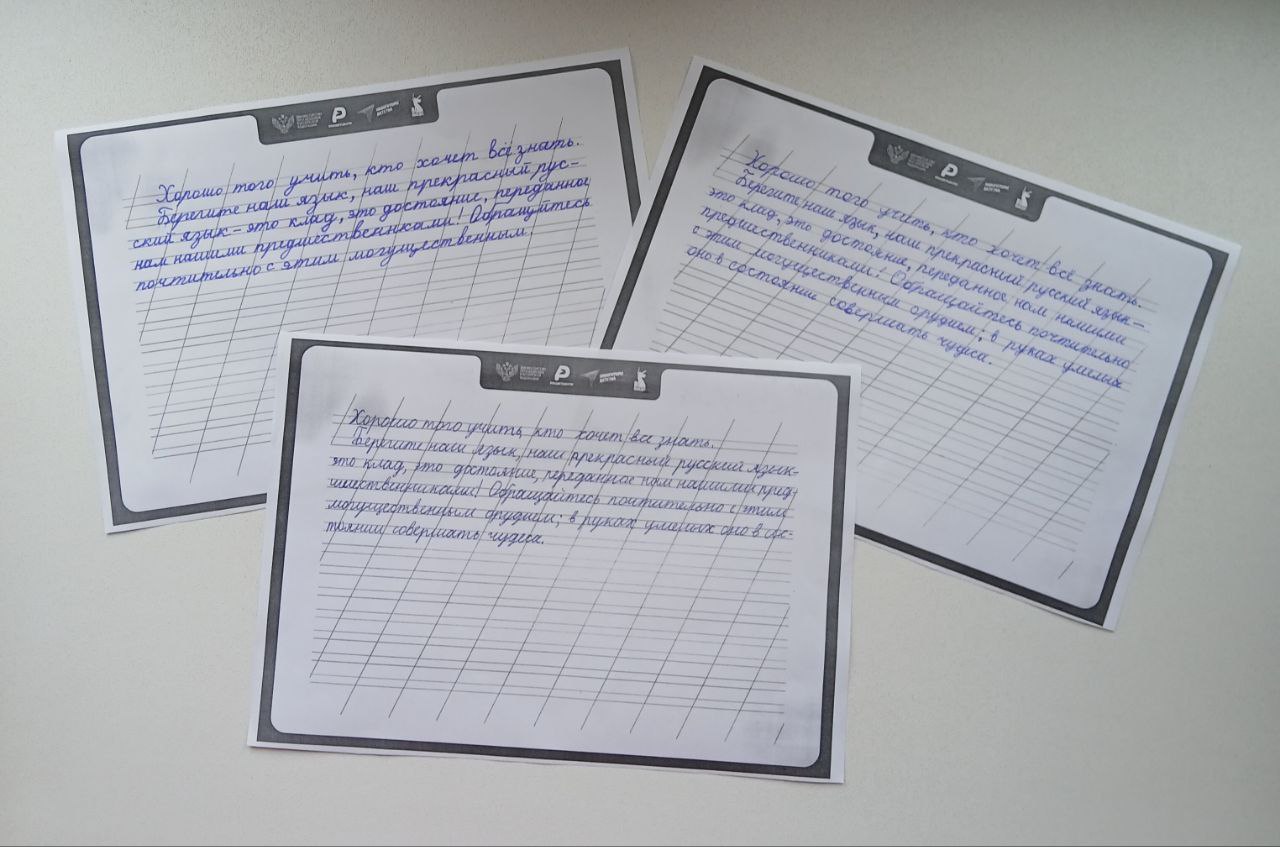 Хорошо того учить, кто хочет всё знать.
Берегите наш язык, наш прекрасный рус-
ский язык – это клад, это достояние, переданное
нам нашими предшественниками! Обращайтесь
почтительно с этим могущественным
Хорошо того учить, кто хочет всё знать.
Берегите наш язык, наш прекрасный русский язык –
это клад, это достояние, переданное нам нашими
предшественниками! Обращайтесь почтительно
с этим могущественным орудием; в руках умелых
оно в состоянии совершать чудеса.
Хорошо того учить, кто хочет все знать.
Берегите наш язык, наш прекрасный русский язык-
это клад, это достояние, переданное нам нашими пред-
шественниками! Обращайтесь почтительно с этим
могущественным орудием; в руках умелых оно в сос-
тоянии совершать чудеса.